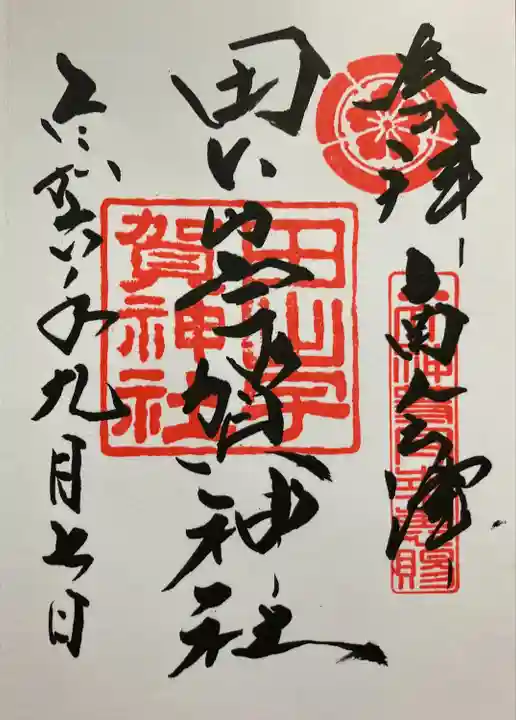 奉拝 南会津
田出宇賀神社
令和六年九月七日
田出宇
賀神社